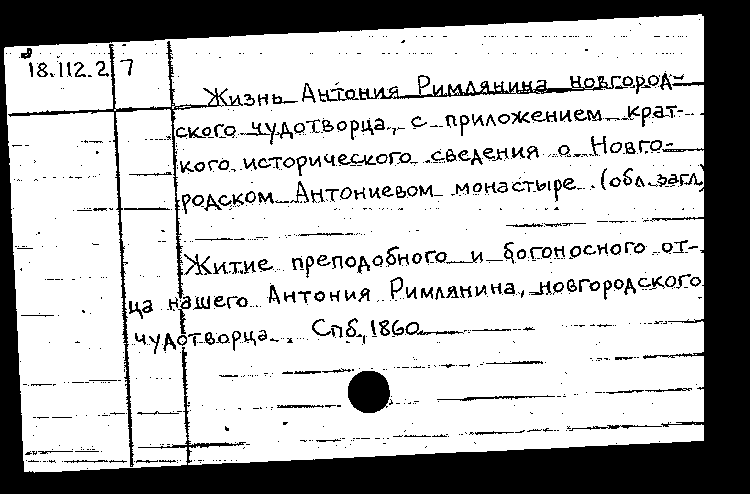 18.112.2.7
Жизнь Антония Римлянина новгород-
ского чудотворца, с приложением крат-
кого исторического сведения о Новго-
родском Антониевом монастыре. (обл. загл.)
Житие преподобного и богоносного от-
ца нашего Антония Римлянина, новгородского
чудотворца. Спб., 1860